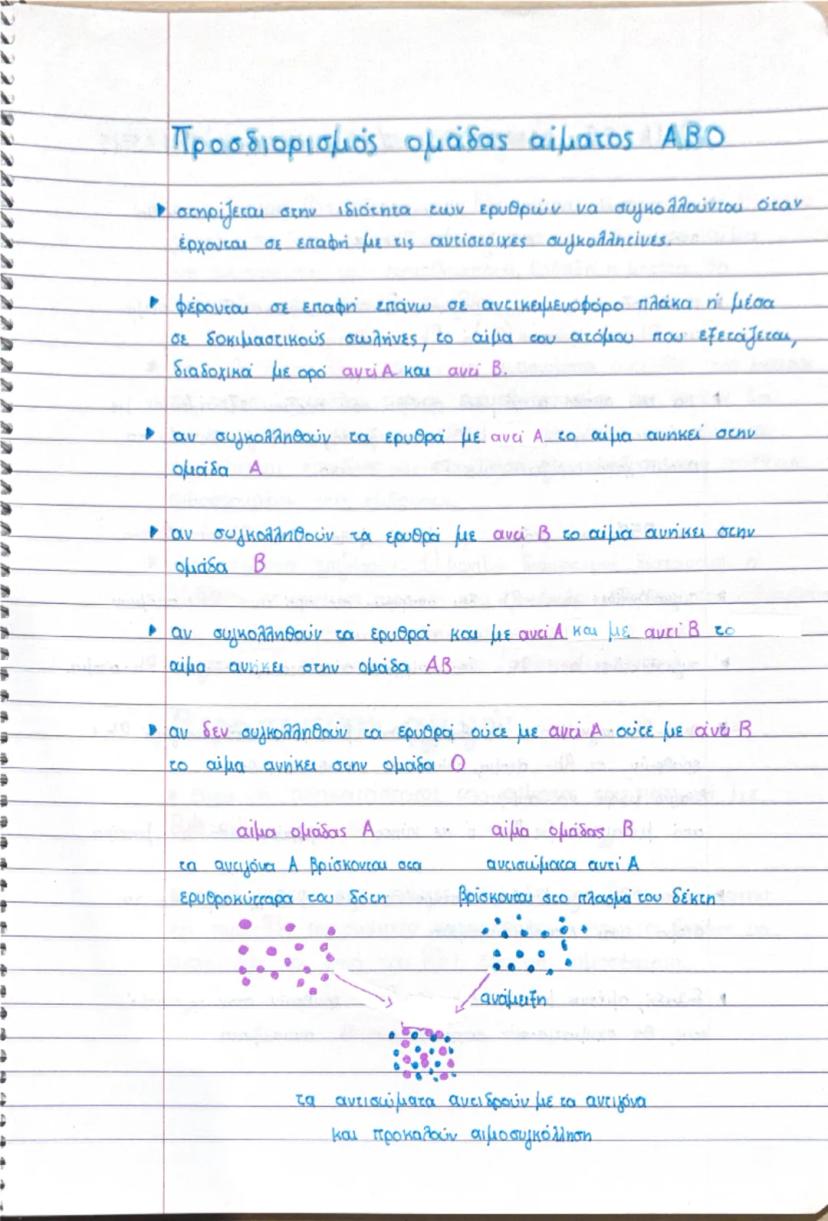 Προσδιορισμός ομάδας αίματος ΑΒΟ
στηρίζεται στην ιδιότητα των ερυθρών να συγκολλούνται όταν
έρχονται σε επαφή με τις αντίστοιχες συγκολλητίνες.
φέρονται σε επαφή επάνω σε αντικειμενοφόρο πλάκα ή μέσα
σε δοκιμαστικούς σωλήνες, το αίμα του ατόμου που εξετάζεται,
διαδοχικά με ορό αντί Α και αντί Β.
αν συγκολληθούν τα ερυθρά με αντί Α το αίμα ανήκει στην
ομάδα Α
αν συγκολληθούν τα ερυθρά με αντί Β το αίμα ανήκει στην
ομάδα Β
αν συγκολληθούν τα ερυθρά και με αντί Α και με αντί Β το
αίμα ανήκει στην ομάδα ΑΒ
αν δεν συγκολληθούν τα ερυθρά ούτε με αντί Α ούτε με άντι Β
το αίμα ανήκει στην ομάδα Ο
αίμα ομάδας Α αίμα ομάδας Β
τα αντιγόνα Α βρίσκονται στα αντισώματα αντί Α
ερυθροκύτταρα του δότη βρίσκονται στο πλάσμα του δέκτη
ανάμειξη
τα αντισώματα αντιδρούν με τα αντιγόνα
και προκαλούν αιμοσυγκόλληση